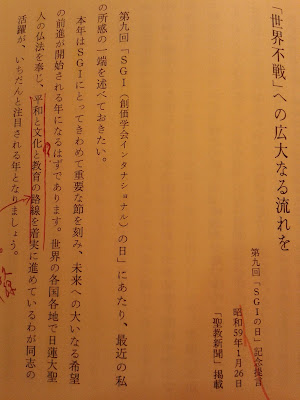 「世界不戦」への広大なる流れを
第九回「SGIの日」記念提言
昭和59年1月26日
「聖教新聞」掲載
第九回「SGI（創価学会インタナショナル）の日」にあたり、最近の私
の所感の一端を述べておきたい。
本年はSGIにとってきわめて重要な節を刻み、未来への大いなる希望
の前進が開始される年になるはずであります。世界の各国各地で日蓮大聖
人の仏法を奉じ、平和と文化と教育の路線を着実に進めているわが同志の
活躍が、いちだんと注目される年となりましょう。